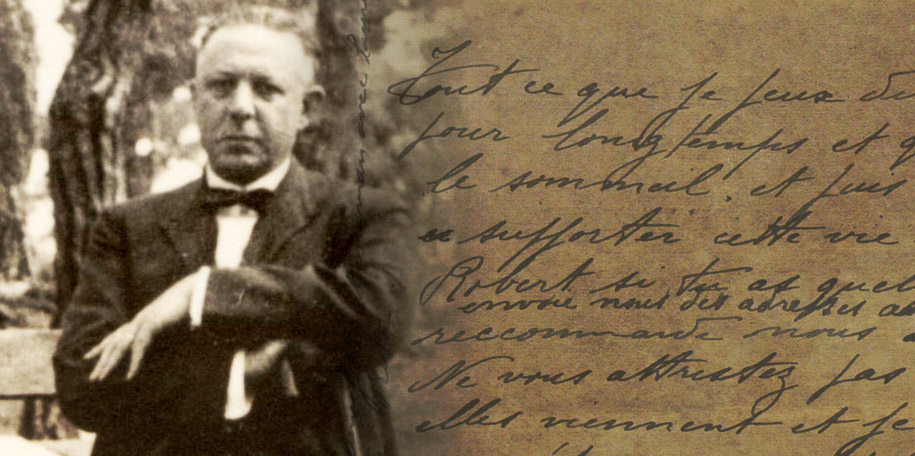 Tout ce que je peux
pour longtemps et
le sommeil, et puis
supporter cette vie
Robert si tu as
envoie nous des adresses
reccommande nous
Ne vous attristez pas
elles viennent et je